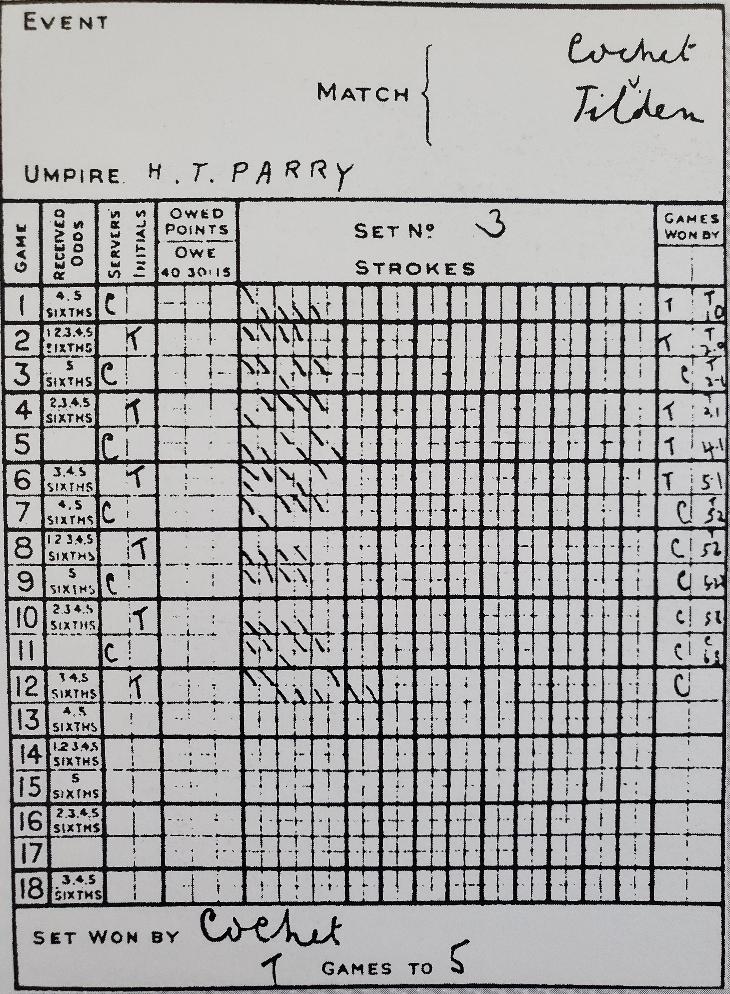 EVENT
Cochet
MATCH { v
Tilden
UMPIRE H. T. PARRY
GAME RECEIVED ODDS SERVERS INITIALS OWED POINTS OWE 40 30 15 SET Nº 3 STROKES GAMES WON BY
1 4.5 SIXTHS C T T 1 0
2 1 2.3.4.5 SIXTHS T T T 2-0
3 5 SIXTHS C C T 2-1
4 2.3.4.5 SIXTHS T T 3.1
5 C T 4-1
6 3.4.5 SIXTHS T T 5-1
7 4.5 SIXTHS C C T 52
8 1 2 3.4.5 SIXTHS T C
9 5 SIXTHS C C
10 2.3.4.5 SIXTHS T C
11 C C C
12 3 4.5 SIXTHS T C
13 4.5 SIXTHS
14 1.2 3.4.5 SIXTHS
15 5 SIXTHS
16 2.3.4.5 SIXTHS
17
18 3.4.5 SIXTHS
SET WON BY Cochet
7 GAMES TO 5